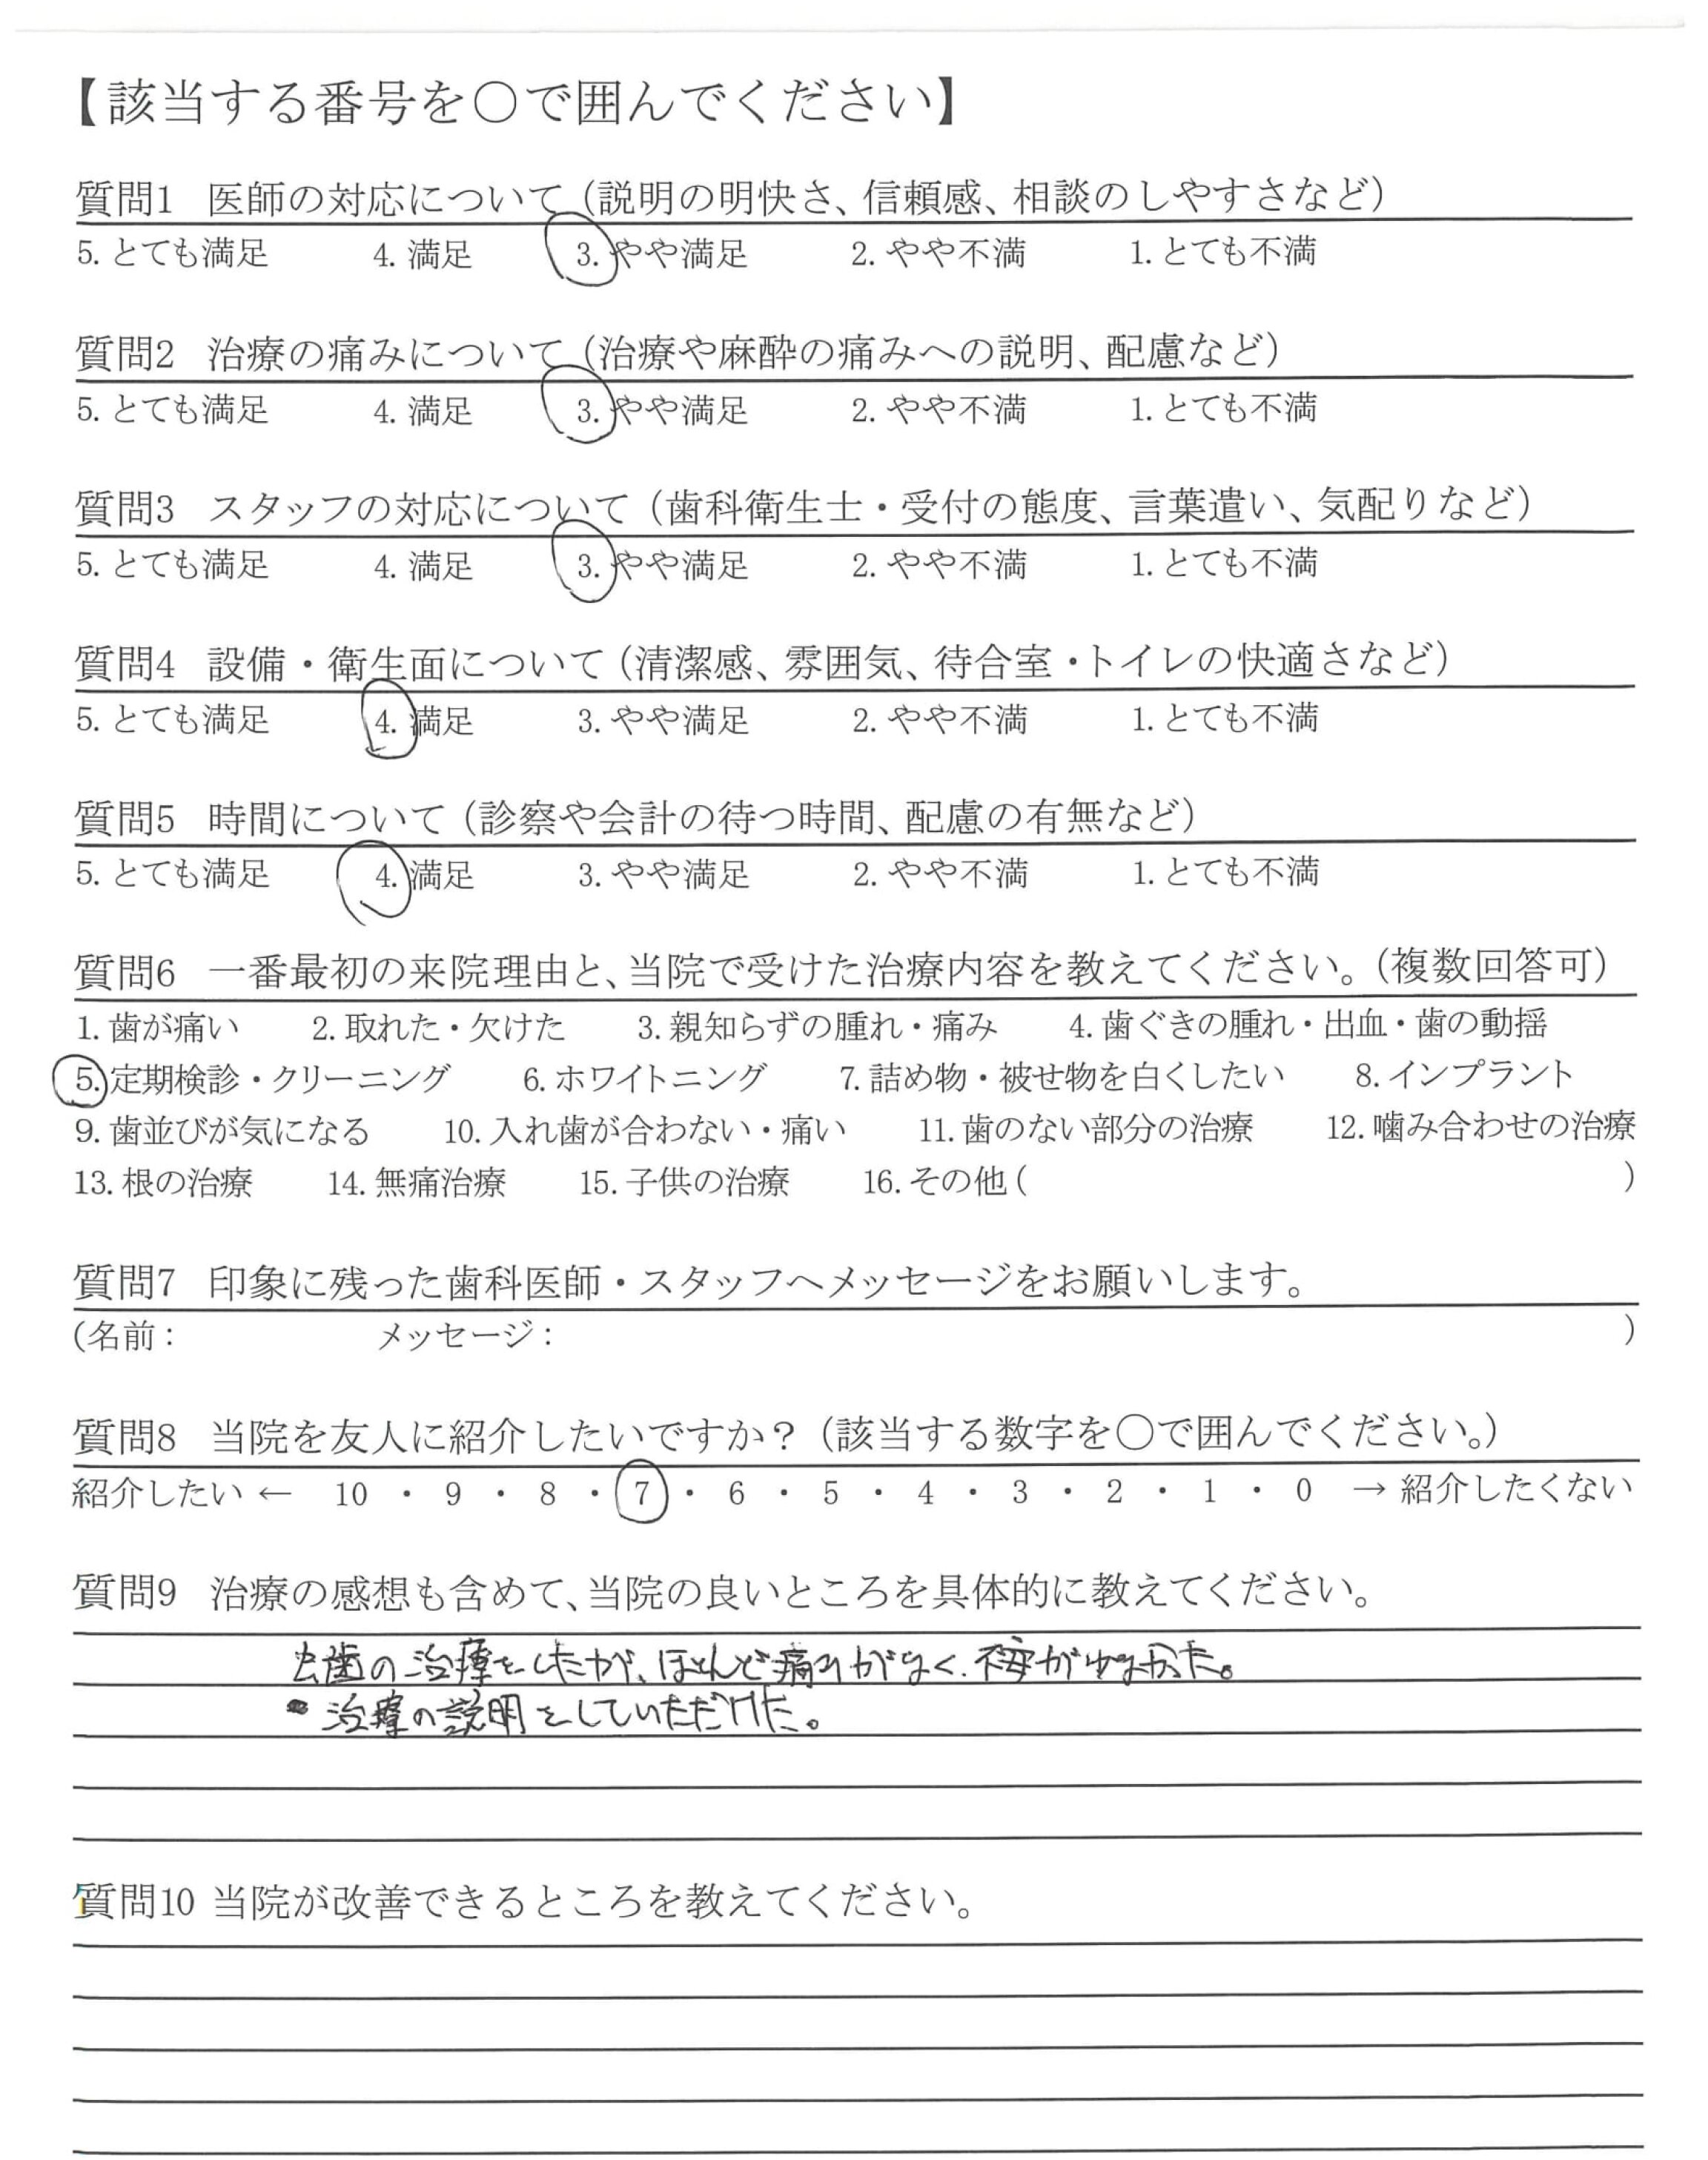 【該当する番号を〇で囲んでください】
質問1 医師の対応について（説明の明快さ、信頼感、相談のしやすさなど）
5. とても満足 4. 満足 3. やや満足 2. やや不満 1. とても不満
質問2 治療の痛みについて（治療や麻酔の痛みへの説明、配慮など）
5. とても満足 4. 満足 3. やや満足 2. やや不満 1. とても不満
質問3 スタッフの対応について（歯科衛生士・受付の態度、言葉遣い、気配りなど）
5. とても満足 4. 満足 3. やや満足 2. やや不満 1. とても不満
質問4 設備・衛生面について（清潔感、雰囲気、待合室・トイレの快適さなど）
5. とても満足 4. 満足 3. やや満足 2. やや不満 1. とても不満
質問5 時間について（診察や会計の待つ時間、配慮の有無など）
5. とても満足 4. 満足 3. やや満足 2. やや不満 1. とても不満
質問6 一番最初の来院理由と、当院で受けた治療内容を教えてください。（複数回答可）
1. 歯が痛い 2. 取れた・欠けた 3. 親知らずの腫れ・痛み 4. 歯ぐきの腫れ・出血・歯の動揺
5. 定期検診・クリーニング 6. ホワイトニング 7. 詰め物・被せ物を白くしたい 8. インプラント
9. 歯並びが気になる 10. 入れ歯が合わない・痛い 11. 歯のない部分の治療 12. 噛み合わせの治療
13. 根の治療 14. 無痛治療 15. 子供の治療 16. その他（ ）
質問7 印象に残った歯科医師・スタッフへメッセージをお願いします。
（名前： メッセージ： ）
質問8 当院を友人に紹介したいですか？（該当する数字を〇で囲んでください。）
紹介したい ← 10 ・ 9 ・ 8 ・ 7 ・ 6 ・ 5 ・ 4 ・ 3 ・ 2 ・ 1 ・ 0 → 紹介したくない
質問9 治療の感想も含めて、当院の良いところを具体的に教えてください。
虫歯の治療をしたが、ほとんど痛みがなく、不安が少なかった。
・治療の説明をしていただけた。
質問10 当院が改善できるところを教えてください。